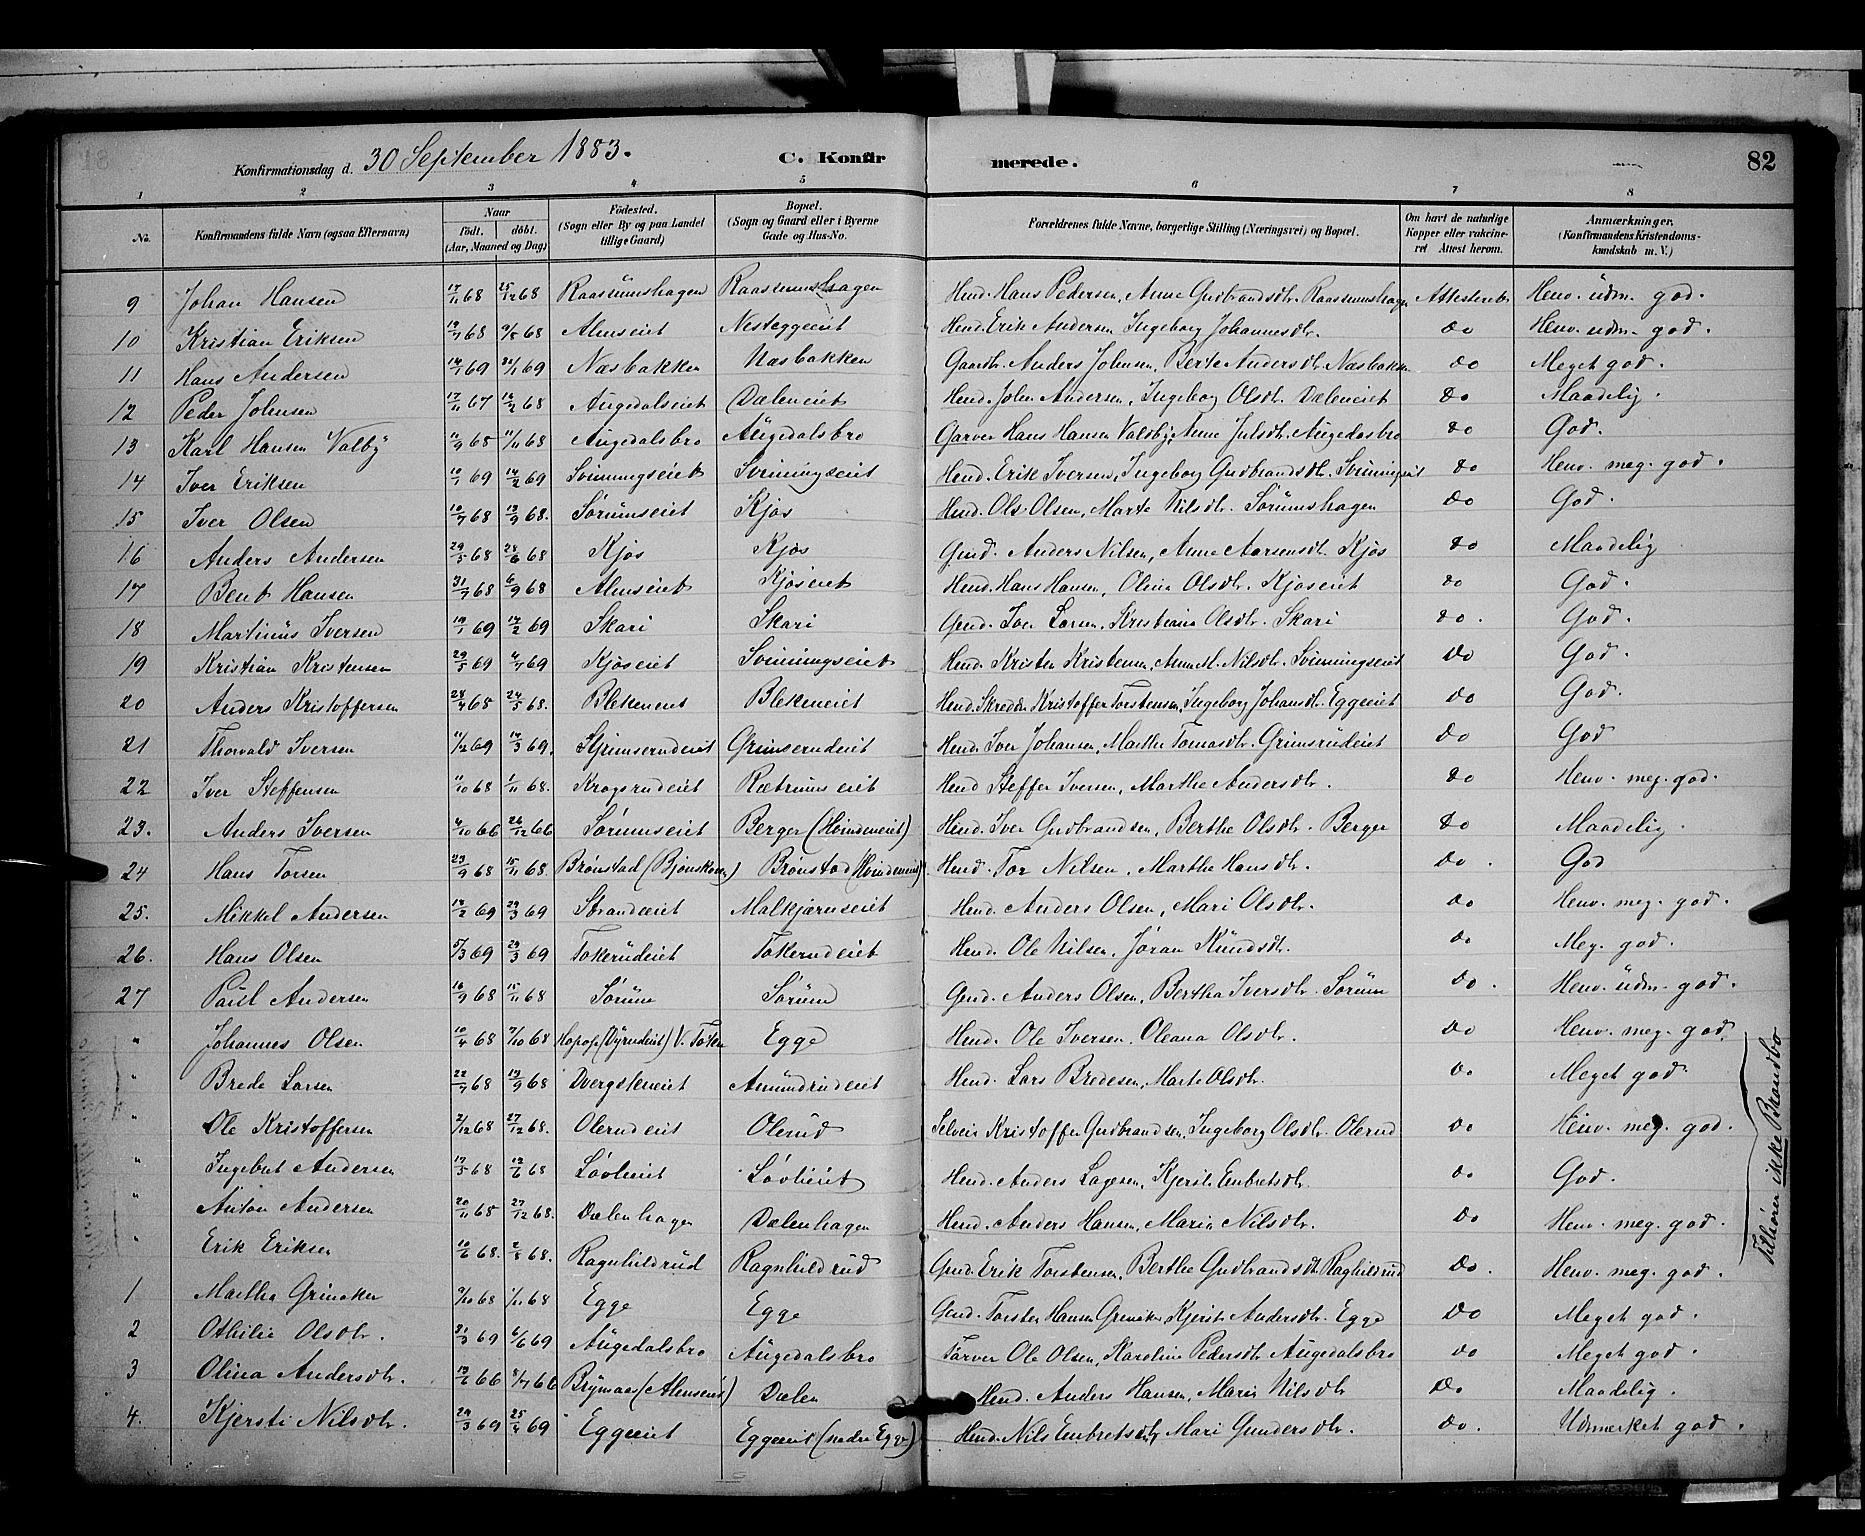 Konfirmationsdag d. 30 September 1883. C. Konfirmerede. 82
1 2 3 4 5 6 7 8
No. Konfirmandens fulde Navn (ogsaa Efternavn) Naar født. døbt. (Aar, Maaned og Dag) Fødested. (Sogn eller By og paa Landet tillige Gaard) Bopæl. (Sogn og Gaard eller i Byerne Gade og Hus-No. Forældrenes fulde Navne, borgerlige Stilling (Næringsvei) og Bopæl. Om havt de naturlige Kopper eller vaccineret Attest herom. Anmærkninger, (Konfirmandens Kristendomskundskab m. V.)
9 Johan Hansen 68 25/12 68 Raassumshagen Raassumshagen Hmd. Hans Pedersen, Anne Gudbrandsdtr. Raassumshagen Attesteret Henv. udm. god.
10 Kristian Eriksen 68 9/8 68 Almseiet Nesteggeeiet Hmd. Erik Andersen Ingeborg Johannesdtr. Do Henv. udm. god.
11 Hans Andersen 69 69 Næsbakken Næsbakken Gaardbr. Anders Johnsen, Berte Andersdtr. Næsbakken Do Meget god.
12 Peder Johnsen 17/11 67 68 Augedalseiet Dæleneiet Hmd. John Andersen, Ingeborg Olsdtr. Dæleneiet Do Maadelig.
13 Karl Hansen Valby 68 11/11 68 Augedalsbro Augedalsbro Garver Hans Hansen Valby Anne Julsdtr. Augedalsbro Do God.
14 Iver Eriksen 10/1 69 14/2 69 Svinningseiet Svinningseiet Hmd. Erik Iversen, Ingeborg Gudbrandsdtr. Svinningseiet Do Henv. meg. god.
15 Iver Olsen 10/7 68 13/9 68. Sørumseiet Kjos Hmd. Ole Olsen, Marte Nilsdtr. Sørumshagen Do God.
16 Anders Andersen 29/5 68 28/6 68 Kjos Kjos Gmd. Anders Nilsen, Anne Aarsensdtr. Kjos Do Maadelig
17 Bent Hansen 31/7 68 6/9 68 Almseiet Kjoseiet Hmd. Hans Hansen, Olina Olsdtr. Kjoseiet Do God.
18 Martinus Iversen 69 14/2 69 Skari Skari Gmd. Iver Larsen, Kristiana Olsdtr. Skari Do. God.
19 Kristian Kristensen 29/5 69 4/7 69 Kjoseiet Svinningseiet Hmd. Kristen Kristensen, Anne M. Nilsdtr. Svinningseiet Do God.
20 Anders Kristoffersen 68 24/5 68. Blekeneiet Blekeneiet Hmd. Skredder Kristoffer Torstensen, Ingeborg Johansdtr. Eggeeiet Do God.
21 Thorvald Iversen 11/2 69 14/3 69. Grimserudeiet Grimserudeiet Hmd. Iver Johansen, Marthe Tomasdtr. Grimsrudeiet Do God
22 Iver Steffensen 11/10 68 1/11 68. Krogsrudeiet Rætrumseiet Hmd Steffen Iversen, Marthe Andersdtr. Do Henv. meg. god.
23. Anders Iversen 4/10 66 26/12 66 Sørumseiet Berger (Hvindeneiet) Hmd. Iver Gudbrandsen, Berthe Olsdtr. Berger Do Maadelig.
24 Hans Torsen 23/9 68 15/11 68. Brønstad (Bjønskogen) Brønstad (Hvindeneiet) Hmd. Tor Nilsen, Marthe Hansdtr. Do. God
25. Mikkel Andersen 69 29/3 69 Strandeiet Malkjærnseiet Hmd. Anders Olsen, Mari Olsdtr. Do Henv. meg. god.
26. Hans Olsen 5/3 69 29/3 69 Tokerudeiet Tokerudeiet Hmd. Ole Nilsen, Jøran Knudsdtr. Do Meg. god.
27 Paul Andersen 16/9 68 15/11 68 Sørum Sørum Gmd. Anders Olsen, Bertha Iversdtr. Sørum Do. Henv. udm. god.
" Johannes Olsen 68 7/10 68 (Dyrudeiet) V. Toten Egge Hmd. Ole Iversen, Oleana Olsdtr. Do Henv. meg. god.
" Brede Larsen 22/7 68 13/9 68 Dvergsteneiet Amundrudeiet Hmd. Lars Bredesen, Marte Olsdtr. Do Meget god.
" Ole Kristoffersen 2/12 68 27/12 68. Olerudeiet Olerud Selveier Kristoffer Gudbrandsen, Ingeborg Olsdtr. Olerud Do Henv. meg. god.
" Ingebret Andersen 17/5 68 68 Løvlieiet Løvlieiet Hmd. Anders Lagesen, Kjersti Enbretsdtr. Do God.
" Anton Andersen 20/11 68 27/12 68. Dælenhagen Dælenhagen Hmd. Anders Hansen, Maria Nilsdtr. Do Henv. meg. god.
" Erik Eriksen 68. 2/8 68. Ragnhildrud Ragnhildrud Gmd. Erik Torstensen, Berthe Gudbrandsdtr. Raghildrud Do. Henv. meg. god.
Tilhører ikke Brandbo
1 Martha Grinaker 9/10 68 1/11 68 Egge Egge Gmd. Torsten Hansen Grinaker, Kjersti Andersdtr. Egge Do Meget god.
2 Othilie Olsdtr. 31/3 69 6/6 69 Augedalsbro Augedalsbro Farver Ole Olsen, Karoline Pedersdtr Augedalsbro Do Meget god.
3 Olina Andersdtr. 66 8/7 66 Brymaa (Almseiet) Dælen Hmd. Anders Hansen, Maria Nilsdtr Do Maadelig.
4. Kjersti Nilsdtr. 29/3 69 25/4 69 Eggeeiet Eggeeiet (nedre Egge) Hmd. Nils Enbretsen, Mari Gundersdtr. Do. Udmerket god.